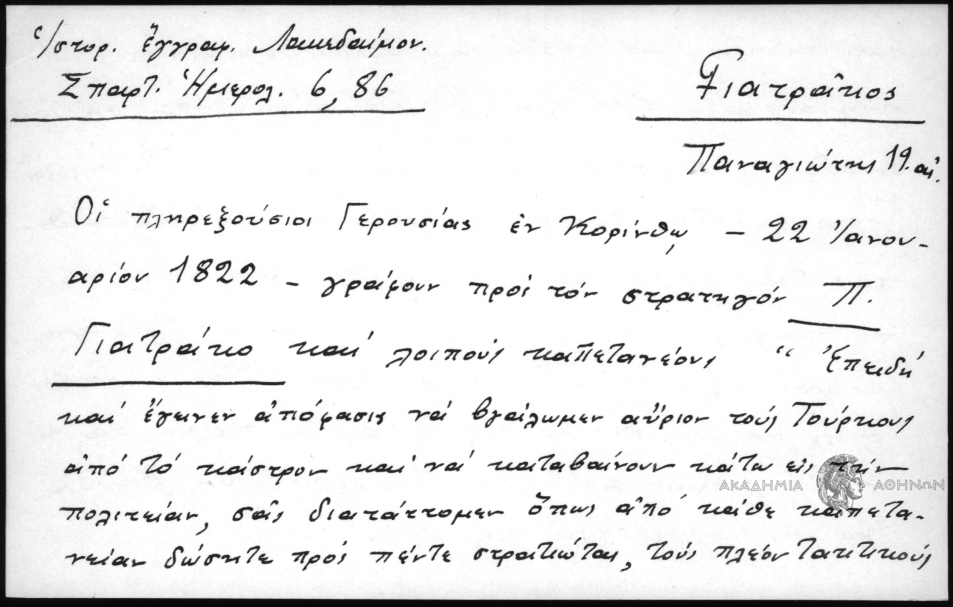 Ἱστορ. ἔγγραφ. Λακεδαίμον.
Σπαρτ. Ἡμερολ. 6, 86
Γιατρᾶκος
Παναγιώτης 19. αἰ.
Οἱ πληρεξούσιοι Γερουσίας ἐν Κορίνθῳ – 22 Ἰανου-
αρίου 1822 – γράφουν πρὸς τόν στρατηγόν Π.
Γιατράκο καί λοιπούς καπετανέους "Ἐπειδή
καί ἔγεινεν ἀπόφασις νά βγάλωμεν αὔριον τούς Τούρκους
ἀπό τό κάστρον καί νά καταβαίνουν κάτω εἰς τήν
πολιτείαν, σᾶς διατάττομεν ὅπως ἀπό κάθε καπετα-
νείαν δώσητε πρός πέντε στρατιώτας, τούς πλέον τακτικούς
ΑΚΑΔΗΜΙΑ ΑΘΗΝΩΝ